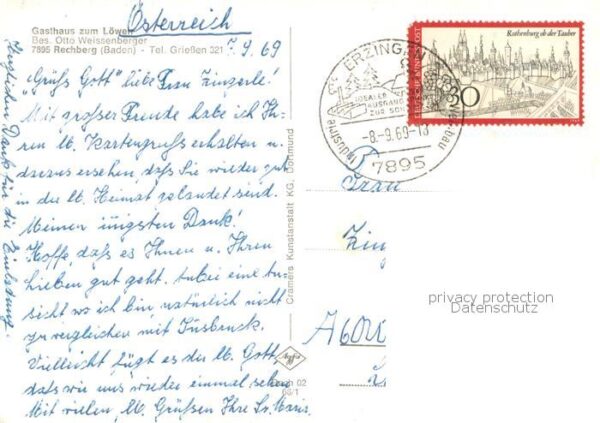 Österreich
Gasthaus zum Löwen
Bes. Otto Weissenberger
7895 Rechberg (Baden) - Tel. Grießen 321
7.9.69
"Grüß Gott" liebe Frau Zingerle!
Mit großer Freude habe ich Ih-
ren lb. Kartengruß erhalten u.
daraus ersehen, daß Sie wieder gut
in die lb. Heimat gelandet sind.
Meinen innigsten Dank!
Hoffe, daß es Ihnen u. Ihren
Lieben gut geht. Anbei eine An-
sicht wo ich bin, natürlich nicht
zu vergleichen mit Insbruck.
Vielleicht fügt es der lb. Gott,
daß wir uns wieder einmal sehen
Mit vielen, lb. Grüßen Ihre Sr. Maria.
Herzlichen Dank für die Einladung.
Cramers Kunstanstalt KG, Dortmund
Agfa
02
66/1
ERZINGEN
IDEALER
AUSGANG
ZUR
Industrie
bau
-8.-9.69-13
7895
Rothenburg ob der Tauber
DEUTSCHE BUNDESPOST
30
Frau
Zing
A 60
privacy protection
Datenschutz